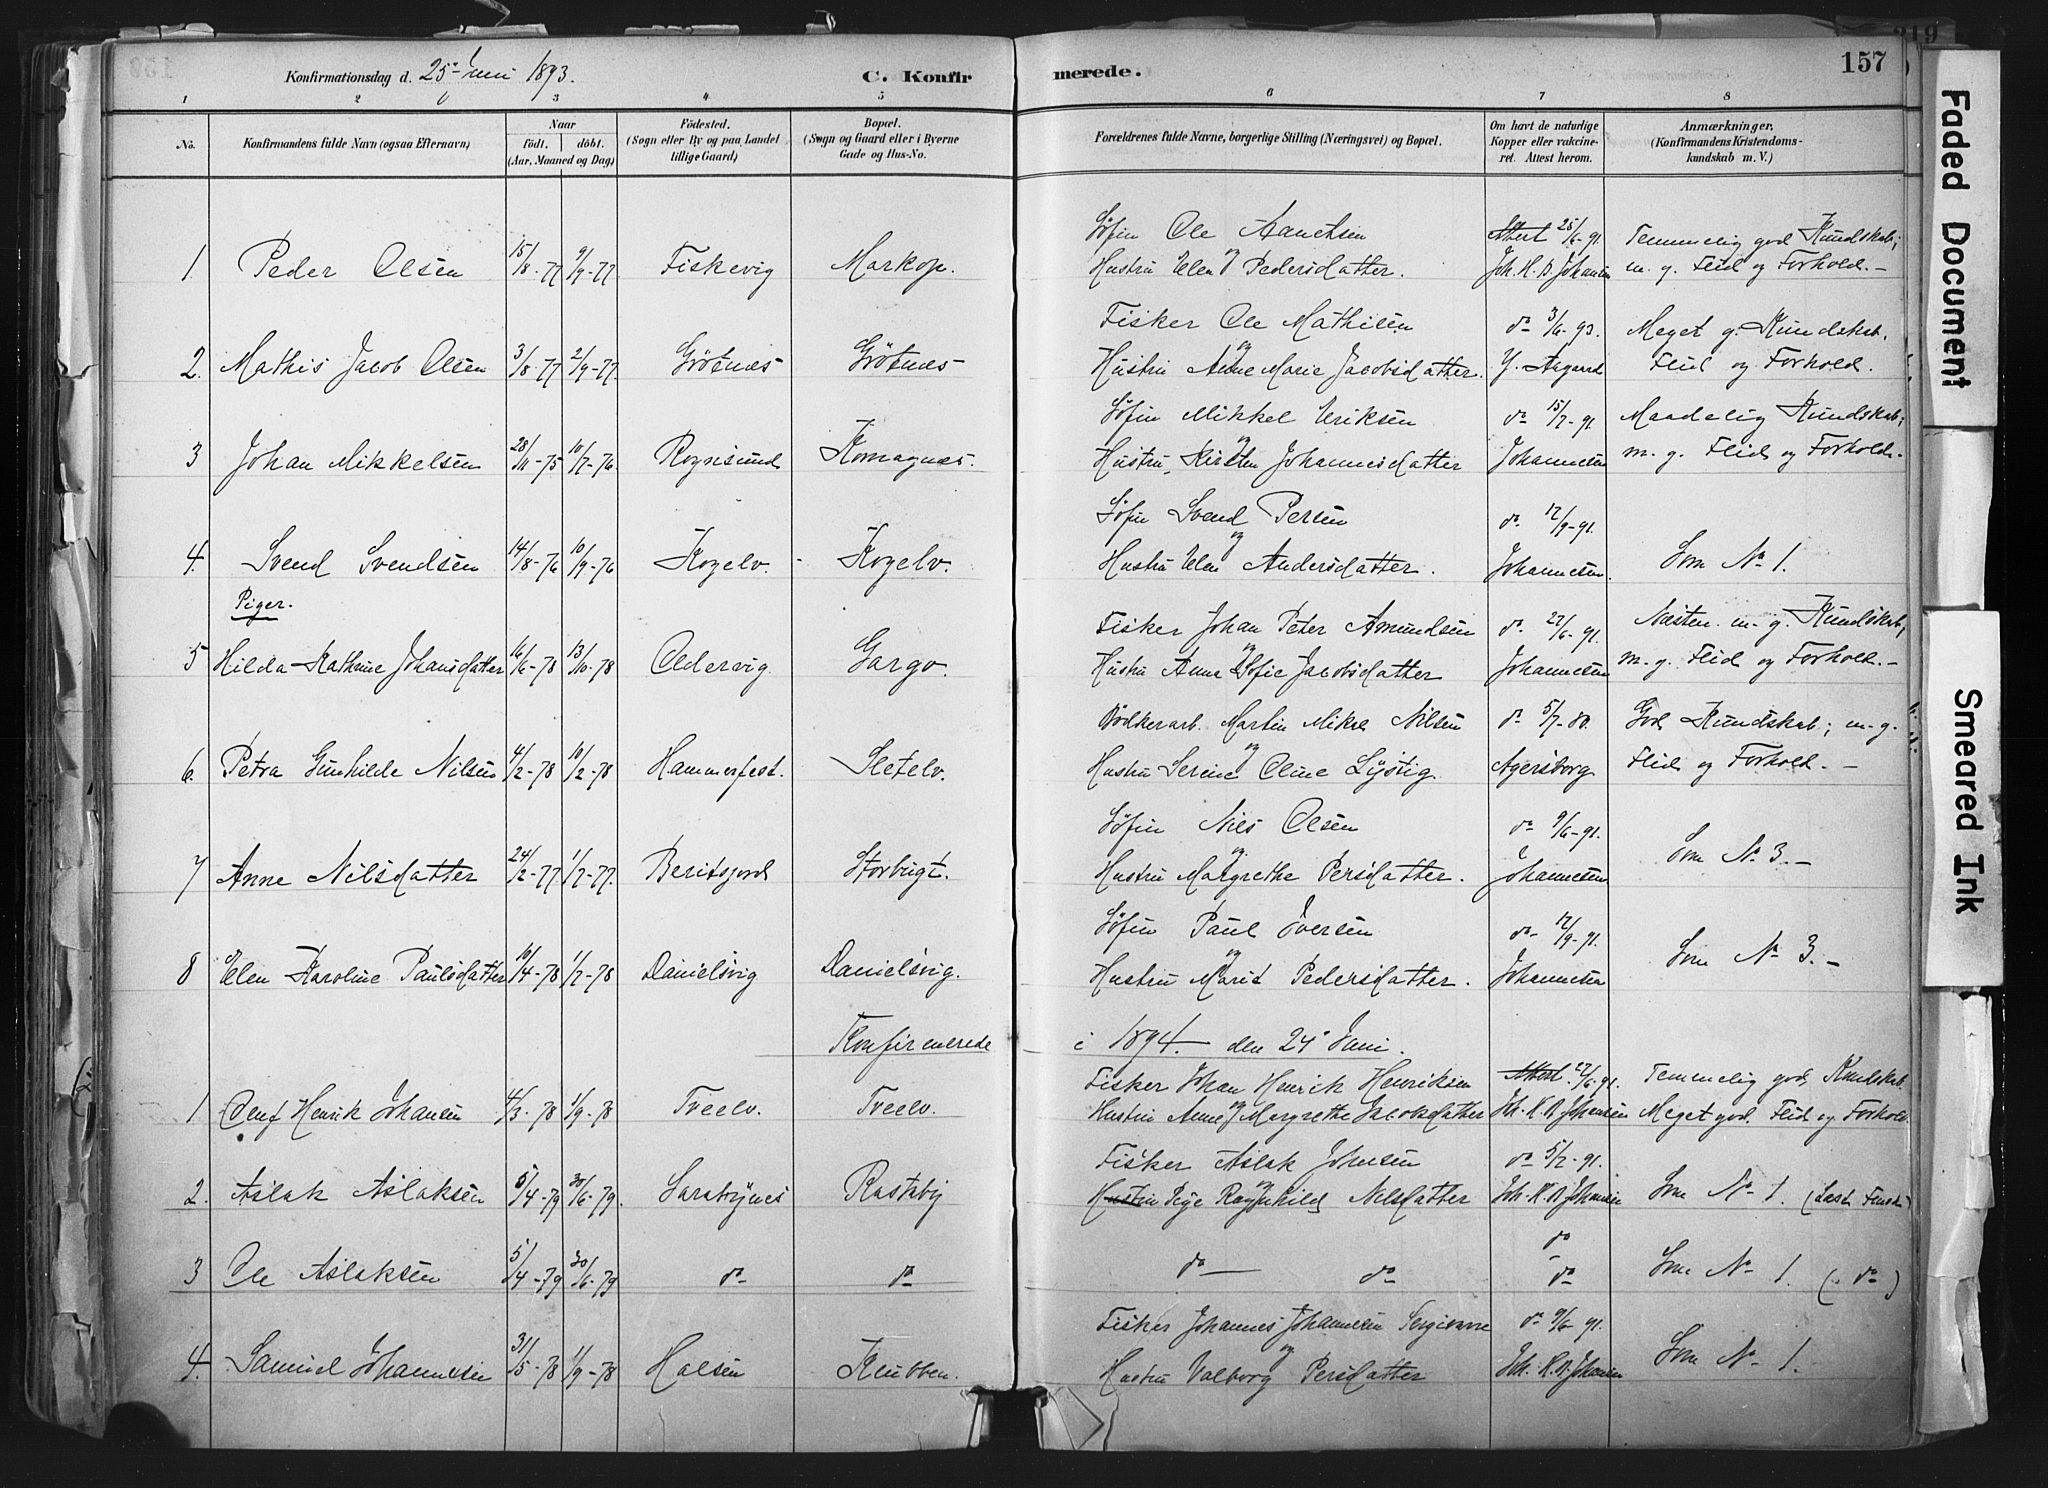 Konfirmationsdag d. 25de Juni 1893. C. Konfirmerede. 157
1 2 3 4 5 6 7 8
No. Konfirmandens fulde Navn (ogsaa Efternavn) Naar født. døbt. (Aar, Maaned og Dag) Fødested. (Sogn eller By og paa Landet tillige Gaard) Bopæl. (Sogn og Gaard eller i Byerne Gade og Hus-No. Forældrenes fulde Navne, borgerlige Stilling (Næringsvei) og Bopæl. Om havt de naturlige Kopper eller vakcineret. Attest herom. Anmærkninger. (Konfirmandens Kristendomskundskab m. V.)
Söfin Ole Attest 25/6-91. Temmelig god Kundskab;
1 Peder Olsen 15/8-77 9/9-77 Fiskevig Markop. Hustru Elen Pedersdatter. Joh. H. B. Johansen m. g. Flid og Forhold.-
Fisker Ole Mathisen do 3/6-93. Meget g. Kundskab,
2. Mathis Jacob Olsen 3/8-77 2/9-77. Grötnæs Grötnæs og Hustru Anne Marie Jacobsdatter. Y. Aagaard Flid og Forhold.
Söfin Mikkel Eriksen do 15/7-91 Maadelig Kundskab;
3 Johan Mikkelsen 28/11-75 10/7-76. Rognsund Komagnæs. og Hustru Kirsten Johannesdatter Johannesen m. g. Flid og Forhold.-
Söfin Svend Persen do. 12/9-91.
4. Svend Svendsen 14/8-76 10/9-76 Kogelv. - Kogelv. og Hustru Elen Andersdatter. Johannesen. Som No 1.
Piger.
Fisker Johan Peter Amundsen do. 22/6-91. Næsten m. g. Kundskab,
5 Hilda Kathrine Johansdatter 16/6-78 13/10-78 Oldervig Gargo. og Hustru Anna Sofie Jacobsdatter Johannesen m. g. Flid og Forhold.-
Bödkerarb. Martin Mikal Nilsen do 5/7-80. God Kundskab; m. g.
6. Petra Gunhilde Nilsen 4/2-78 10/2-78 Hammerfest. Sletelv. og Hustru Serine Oline Lystig. Agersborg Flid og Forhold.-
Söfin Nils Olsen do 9/6-91.
7 Anne Nilsdatter 24/2-77 1/7-77. Beritsjord Storbugt. og Hustru Margrethe Persdatter. Johannesen Som No 3.-
Söfin Paul Iversen do- 12/9-91.
8 Elen Karoline Paulsdatter 10/4-78 1/7-78 Danielsvig Danielsvig. og Hustru Marit Pedersdatter. Johannesen Som No 3.-
Konfirmerede i 1894. den 24de Juni.
Fisker Johan Henrik Henriksen Attest. 22/6-91. Temmelig god Kundskab.
1 Oluf Henrik Johansen 4/3-78 1/9-78 Tveelv. Tveelv. og Hustru Anne Margrethe Jacobsdatter Joh. H. B. Johansen Meget god Flid og Forhold.
Fisker Aslak Johnsen do 5/7-91.
2. Aslak Aslaksen 5/4-79 30/6-79. Sarabynes Rastaby og Hustru Pige Ragnhild Nilsdatter Joh. H. B. Johansen Som No 1.
do
3 Ole Aslaksen 5/4-79 30/6-79 do do do - do do Som No 1. (do)
Fisker Johannes Johannesen do 9/6-91.
4. Samuel Johannesen 31/5-78 1/9-78 Halsen Klubben. og Hustru Valborg Persdatter Joh. H. B. Johansen Som No 1.
Faded Document
Smeared Ink